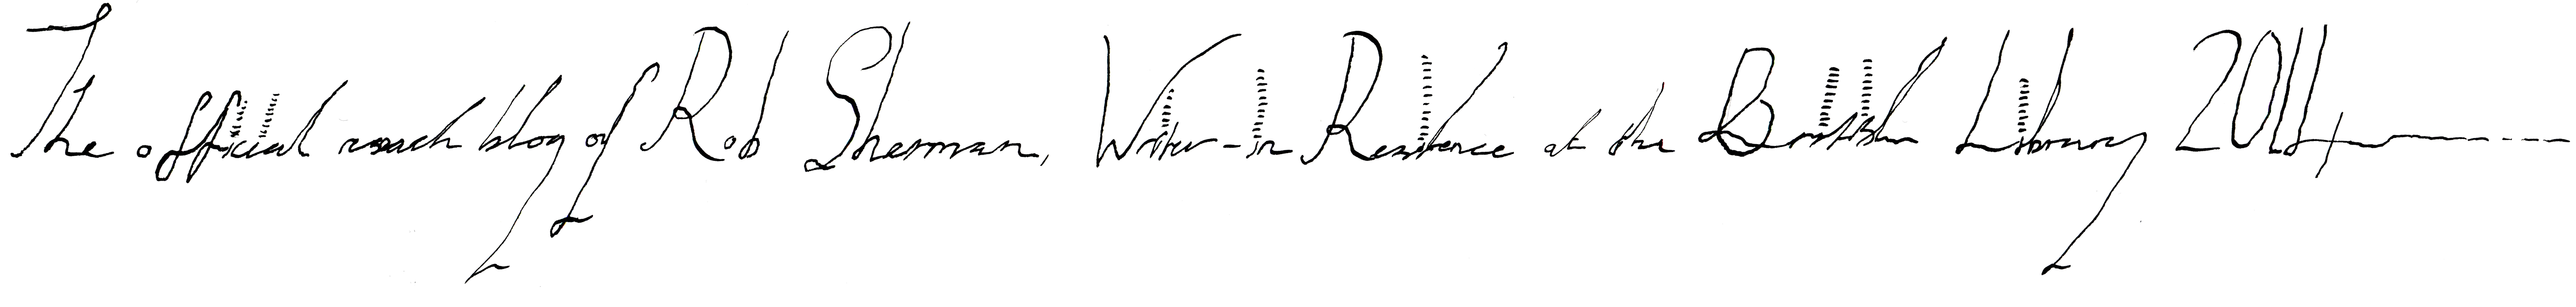 The official research blog of Rob Sherman, Writer-in Residence at the British Library 2014